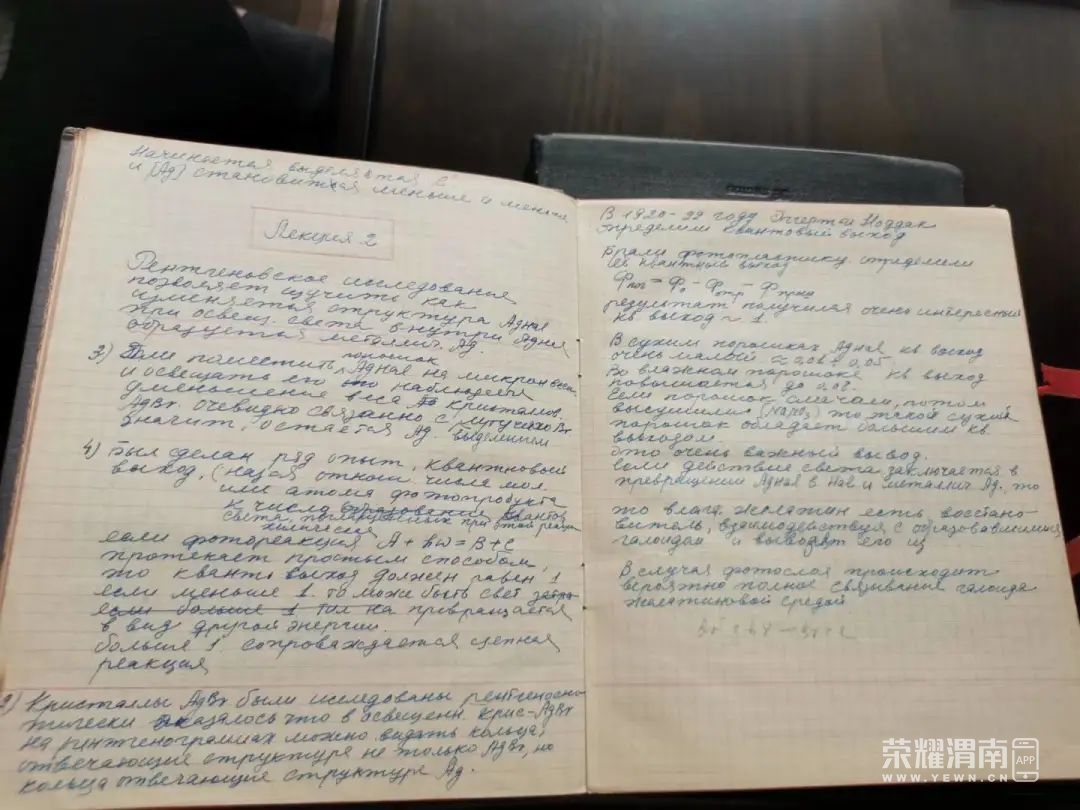 Начинается выделяться e
и [Ag] становиться меньше и меньше
Лекция 2
Рентгеновское исследования
позволяет изучить как
изменяется структура AgHal
при освещ. света внутри AgHal
образуется металлич. Ag.
3) Если поместить порошок AgHal на микрон весы
и освещать его то наблюдается
уменьшение веса кристаллов.
AgBr. очевидно связанно с Br
значит, остаётся Ag. выделением
4) Был сделан ряд опыт, квантновый
выход, (назыв отнош числа мол.
или атома фотопродукта
к числу образование квантов
света, поглащённых при этой реак
химическ
если фотореакция A + hω = B + C
протекает простым способом,
то квант выход должен равен 1
если меньше 1. то може быть свет
если больше 1 то на превращается
в вид другой энергии.
больше 1 сопроваждается цепная
реакция
2) Кристаллы AgBr были исследованы рентгеноско-
пически оказалось что в освещенн. крис-AgBr
на ринтженограммах можно видать кольца,
отвечающие структуре не только AgBr, но
кольца отвечающие структуре Ag.
В 1920-22 году Эггерт и Ноддак
определили квантовый выход
Брали фотопластинку. определили
её квантный выход
Фпог = Ф₀ - Фотр - Фпрош
результат получился очень интересный
кв выход ~ 1.
В сухим порошках AgHal кв выход
очень малый ≈ 0,04 ÷ 0,05
Во влажном порошоке кв выход
повышается до 0,08.
если порошок смачали, потом
высушили (NaNO₂) то такой сухой
порошок обладает большим кв.
выходом.
это очень важный вывод.
если действие света заключается в
превращении AgHal в Hal и металлич Ag, то
то влаг. желатин есть восстано-
витель, взаимодействуя с образовавшимся
галоидом и выводят его из
В случая фотослоя происходит
вероятно полное связывание галоида
желатиновой средой
荣耀渭南 APP
WWW.YEWN.CN